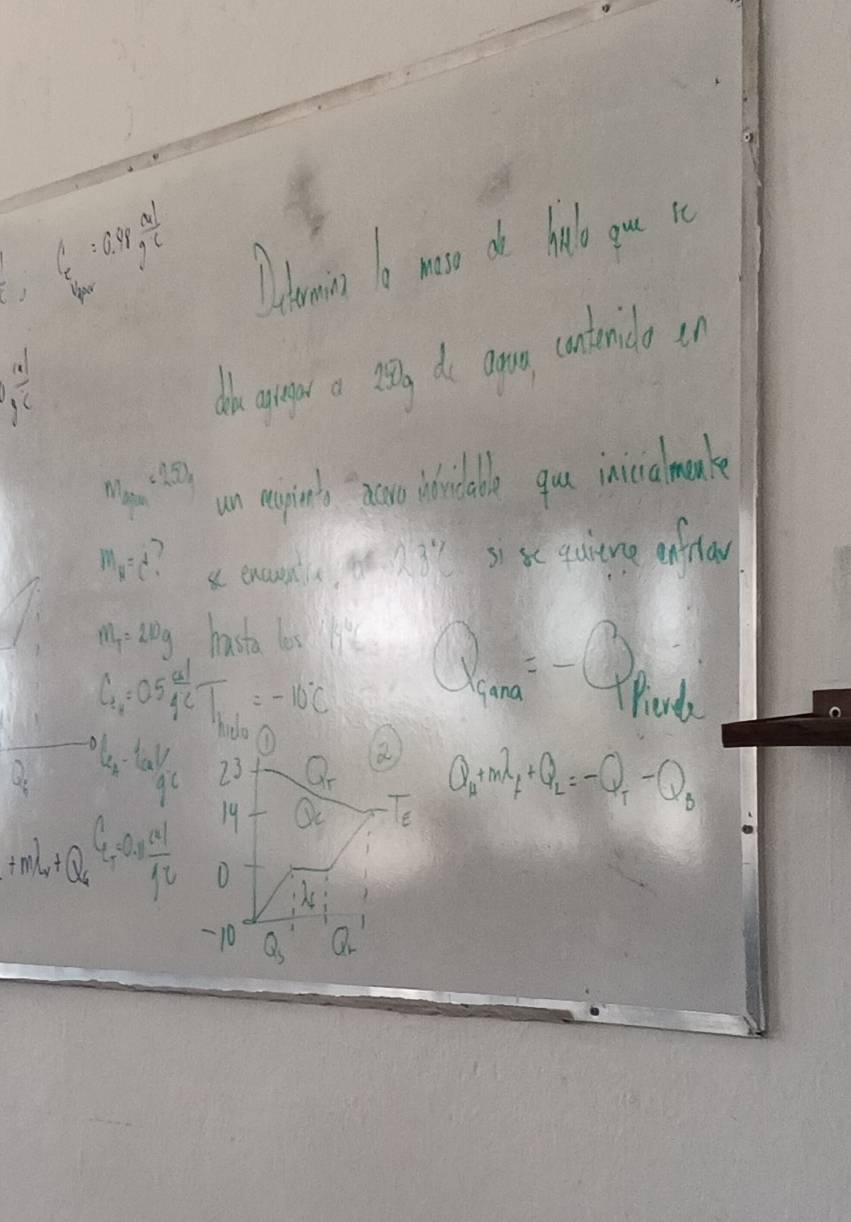 C_e vapor = 0.48 cal/g°C
Determina la masa de hielo que se
debe agregar a 250g de agua, contenida en
un recipiente acero inóxidable que inicialmente
se encuentra a 23°C si se quiere enfriar
hasta los 14°C
m_agua = 250g
m_H = ¿?
m_T = 210g
C_eH = 0.5 cal/g°C
T_hielo = -10°C
C_eA = 1cal/g°C
C_eT = 0.11 cal/g°C
Q_gana = -Q_Pierde
Q_H + mλ_f + Q_L = -Q_T - Q_B
① ②
23 Q_T
14 Q_C T_E
0 λ_f
-10 Q_S Q_L
+ mλ_v + Q_G